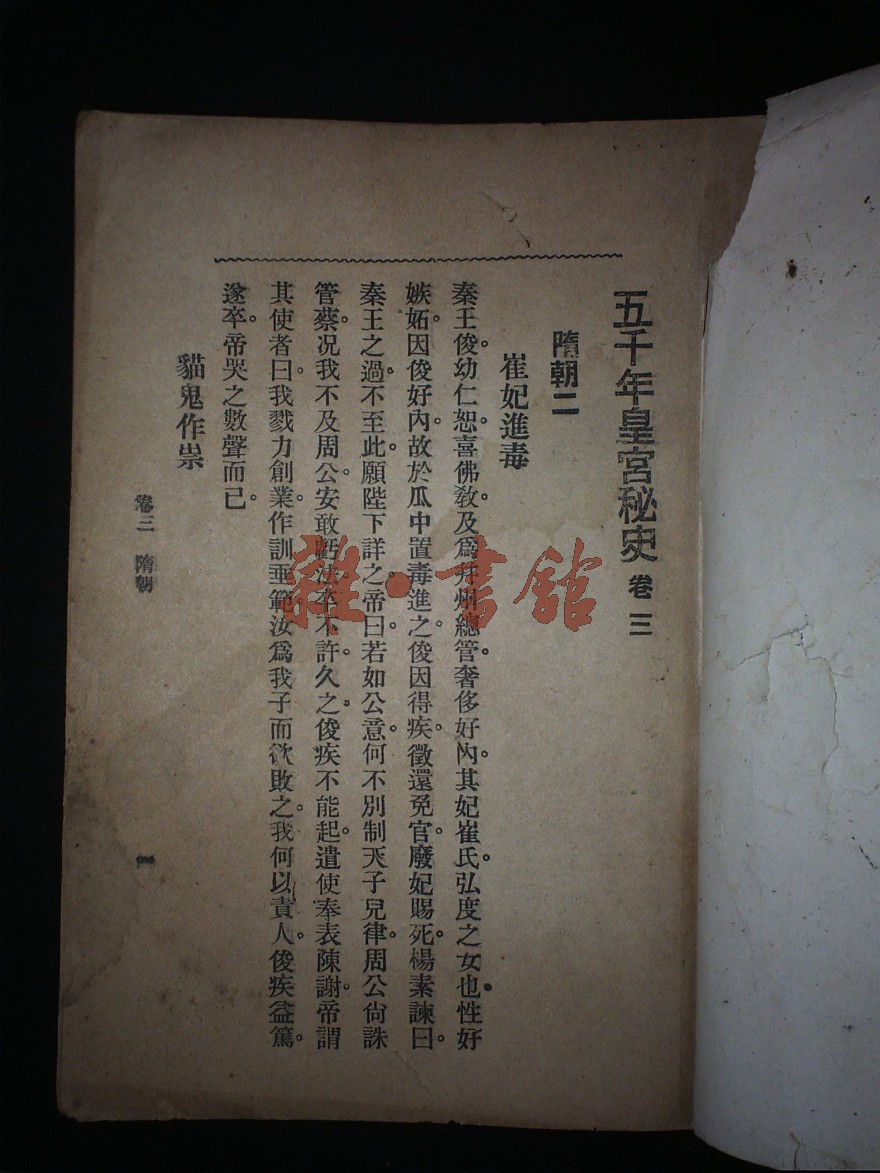 五千年皇宮秘史 卷三
隋朝二
崔妃進毒
秦王俊。幼仁恕。喜佛教。及爲幷州總管。奢侈好內。其妃崔氏。弘度之女也。性好
嫉妬。因俊好內。故於瓜中置毒進之。俊因得疾。徵還免官。廢妃賜死。楊素諫曰。
秦王之過。不至此。願陛下詳之。帝曰。若如公意。何不別制天子兒律。周公尙誅
管蔡。况我不及周公。安敢虧法。卒不許。久之。俊疾不能起。遣使奉表陳謝。帝謂
其使者曰。我戮力創業。作訓垂範。汝爲我子。而欲敗之。我何以責人。俊疾益篤。
遂卒。帝哭之數聲而已。
貓鬼作祟
卷三 隋朝
一
雜·書館